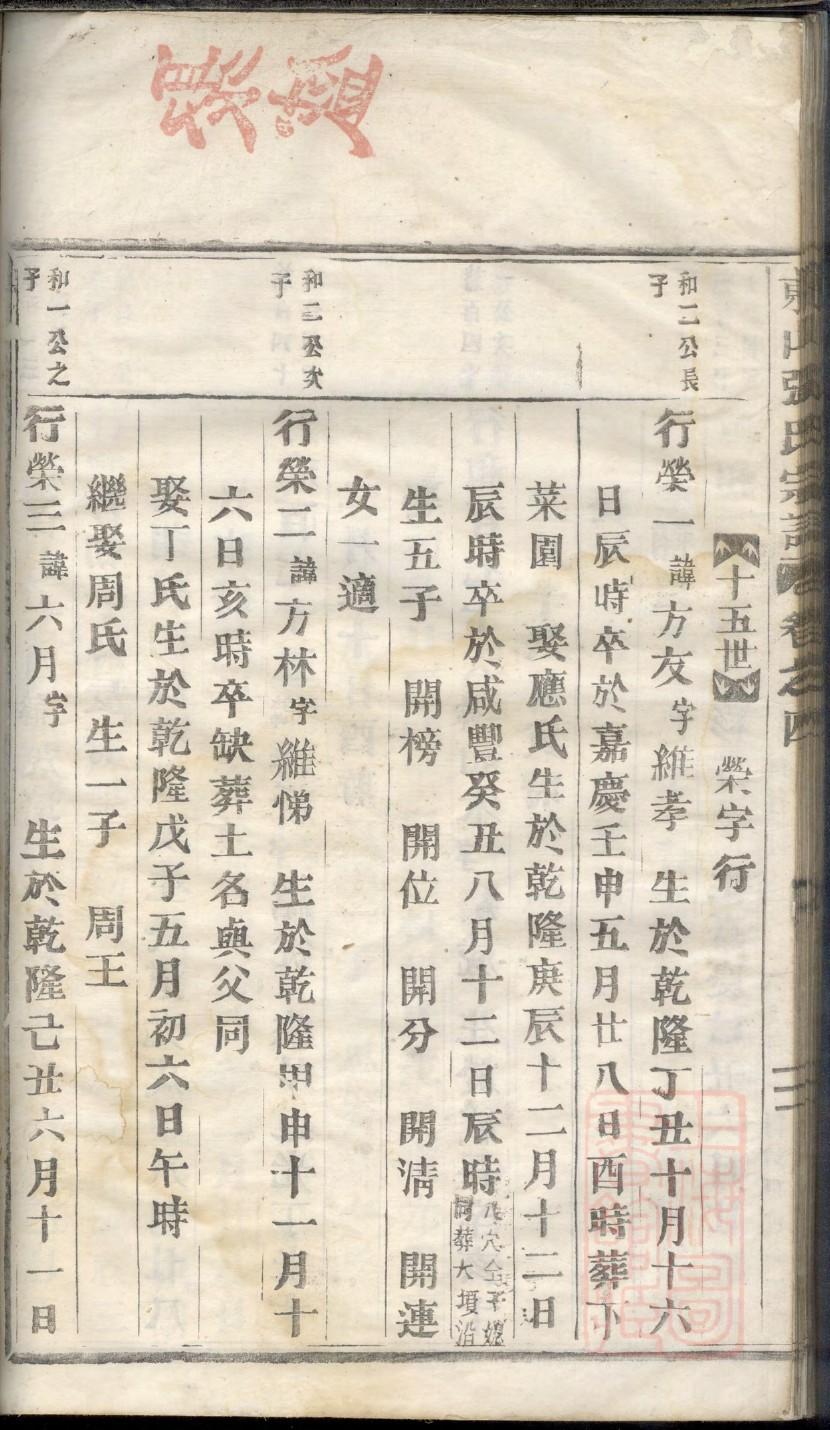 東山張氏宗譜 卷之四
十五世 榮字行
和二公長
子
行榮一諱方友字維孝 生於乾隆丁丑十月十六
日辰時卒於嘉慶壬申五月廿八日酉時葬下
菜園 娶應氏生於乾隆庚辰十二月十二日
辰時卒於咸豐癸丑八月十二日辰時
同葬大墳沿
生五子 開榜 開位 開分 開清 開連
女一適
和二公次
子
行榮二諱方林字維悌 生於乾隆甲申十一月十
六日亥時卒缺葬土名與父同
娶丁氏生於乾隆戊子五月初六日午時
繼娶周氏 生一子 周王
和一公之
子
行榮三諱六月字 生於乾隆己丑六月十一日